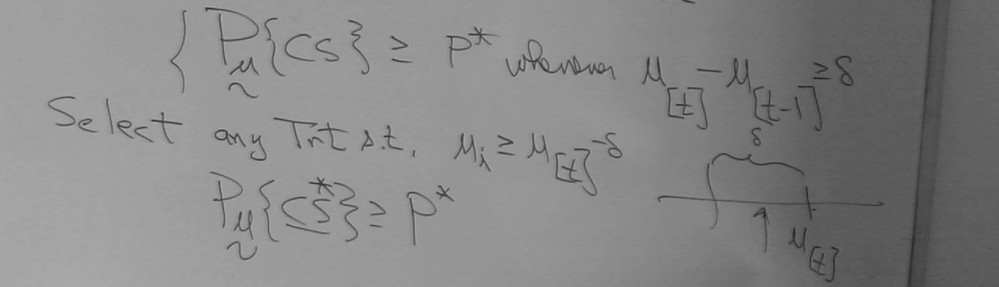 { P_μ̰{CS} ≥ P* whenever μ_[t] - μ_[t-1] ≥ δ
Select any Trt s.t. μ_i ≥ μ_[t] - δ
δ
P_μ̰{CS*} ≥ P*
μ_[t]